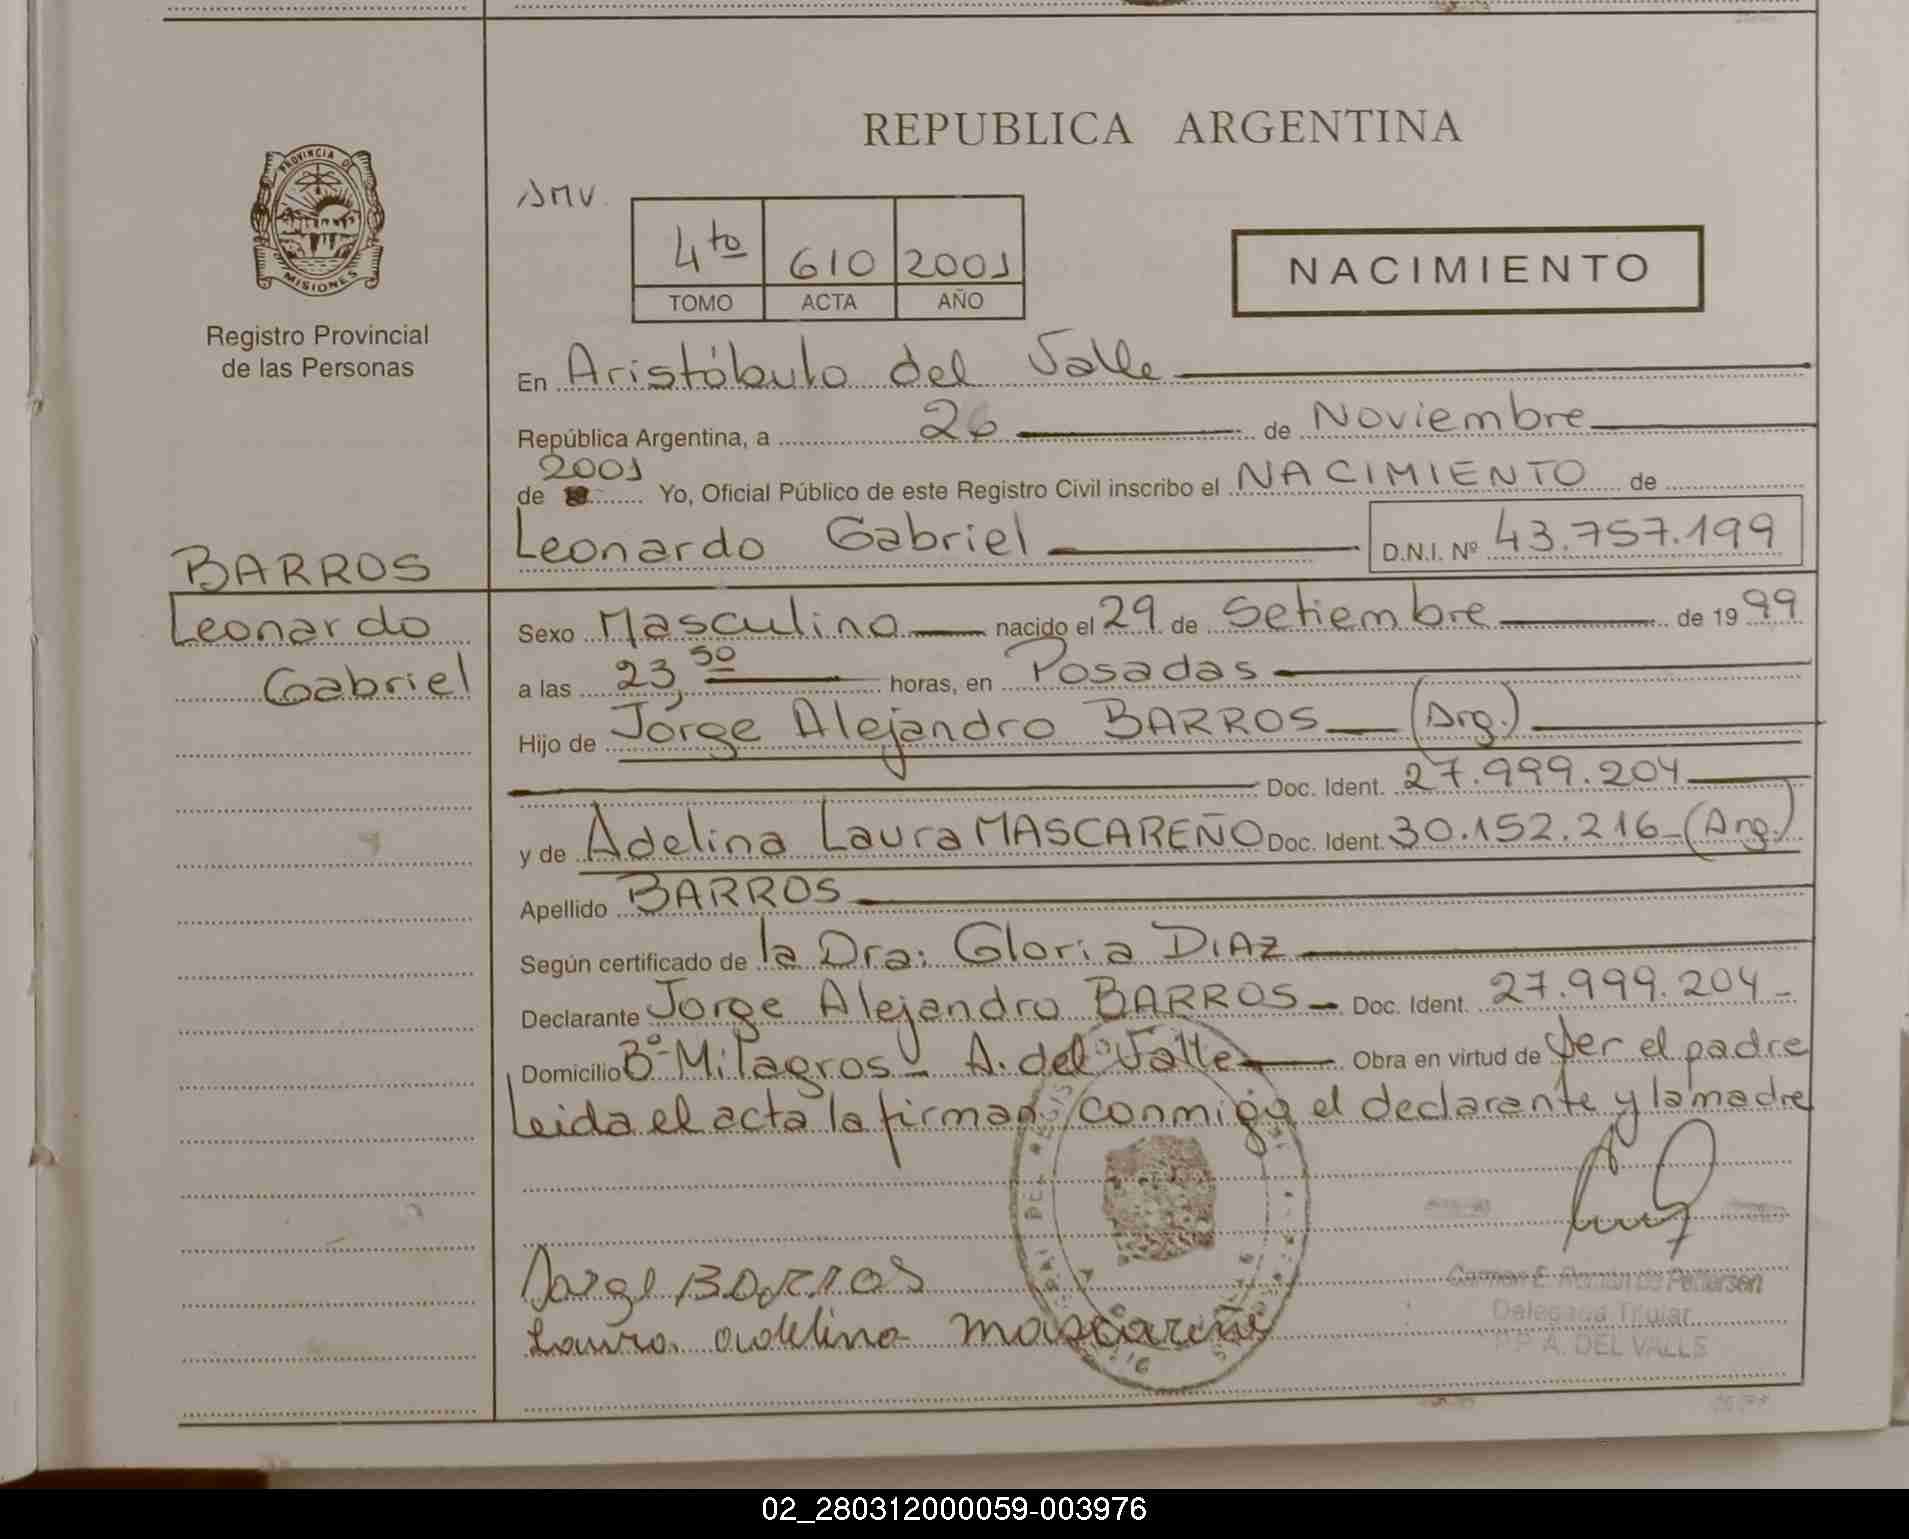 REPUBLICA ARGENTINA
PROVINCIA DE
MISIONES
Registro Provincial
de las Personas
4to 610 2001
TOMO ACTA AÑO
NACIMIENTO
En Aristóbulo del Valle
República Argentina, a 26 de Noviembre
2001
de Yo, Oficial Público de este Registro Civil inscribo el NACIMIENTO de
Leonardo Gabriel D.N.I. Nº 43.757.199
BARROS
Leonardo
Gabriel
Sexo Masculino nacido el 29 de Setiembre de 1999
a las 23,50 horas, en Posadas
Hijo de Jorge Alejandro BARROS (Arg.)
Doc. Ident. 27.999.204
y de Adelina Laura MASCAREÑO Doc. Ident. 30.152.216 (Arg.)
Apellido BARROS
Según certificado de la Dra: Gloria DIAZ
Declarante Jorge Alejandro BARROS Doc. Ident. 27.999.204
Domicilio Bº Milagros - A. del Valle Obra en virtud de ser el padre
Leida el acta la firman conmigo el declarante y la madre
Jorge BARROS
Laura adelina mascareñe
Delegada Titular
A. DEL VALLE
02_280312000059-003976